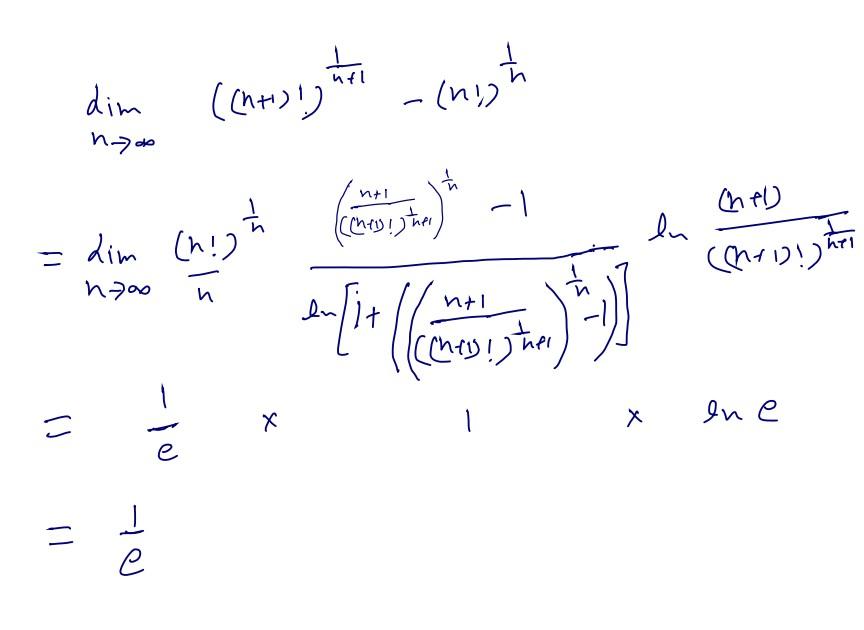 lim_{n→∞} ((n+1)!)^{\frac{1}{n+1}} - (n!)^{\frac{1}{n}}
= lim_{n→∞} \frac{(n!)^{\frac{1}{n}}}{n} \frac{\left(\frac{n+1}{((n+1)!)^{\frac{1}{n+1}}}\right)^{\frac{1}{n}} - 1}{ln\left[1+\left(\left(\frac{n+1}{((n+1)!)^{\frac{1}{n+1}}}\right)^{\frac{1}{n}} - 1\right)\right]} ln \frac{(n+1)}{((n+1)!)^{\frac{1}{n+1}}}
= \frac{1}{e} × 1 × ln e
= \frac{1}{e}